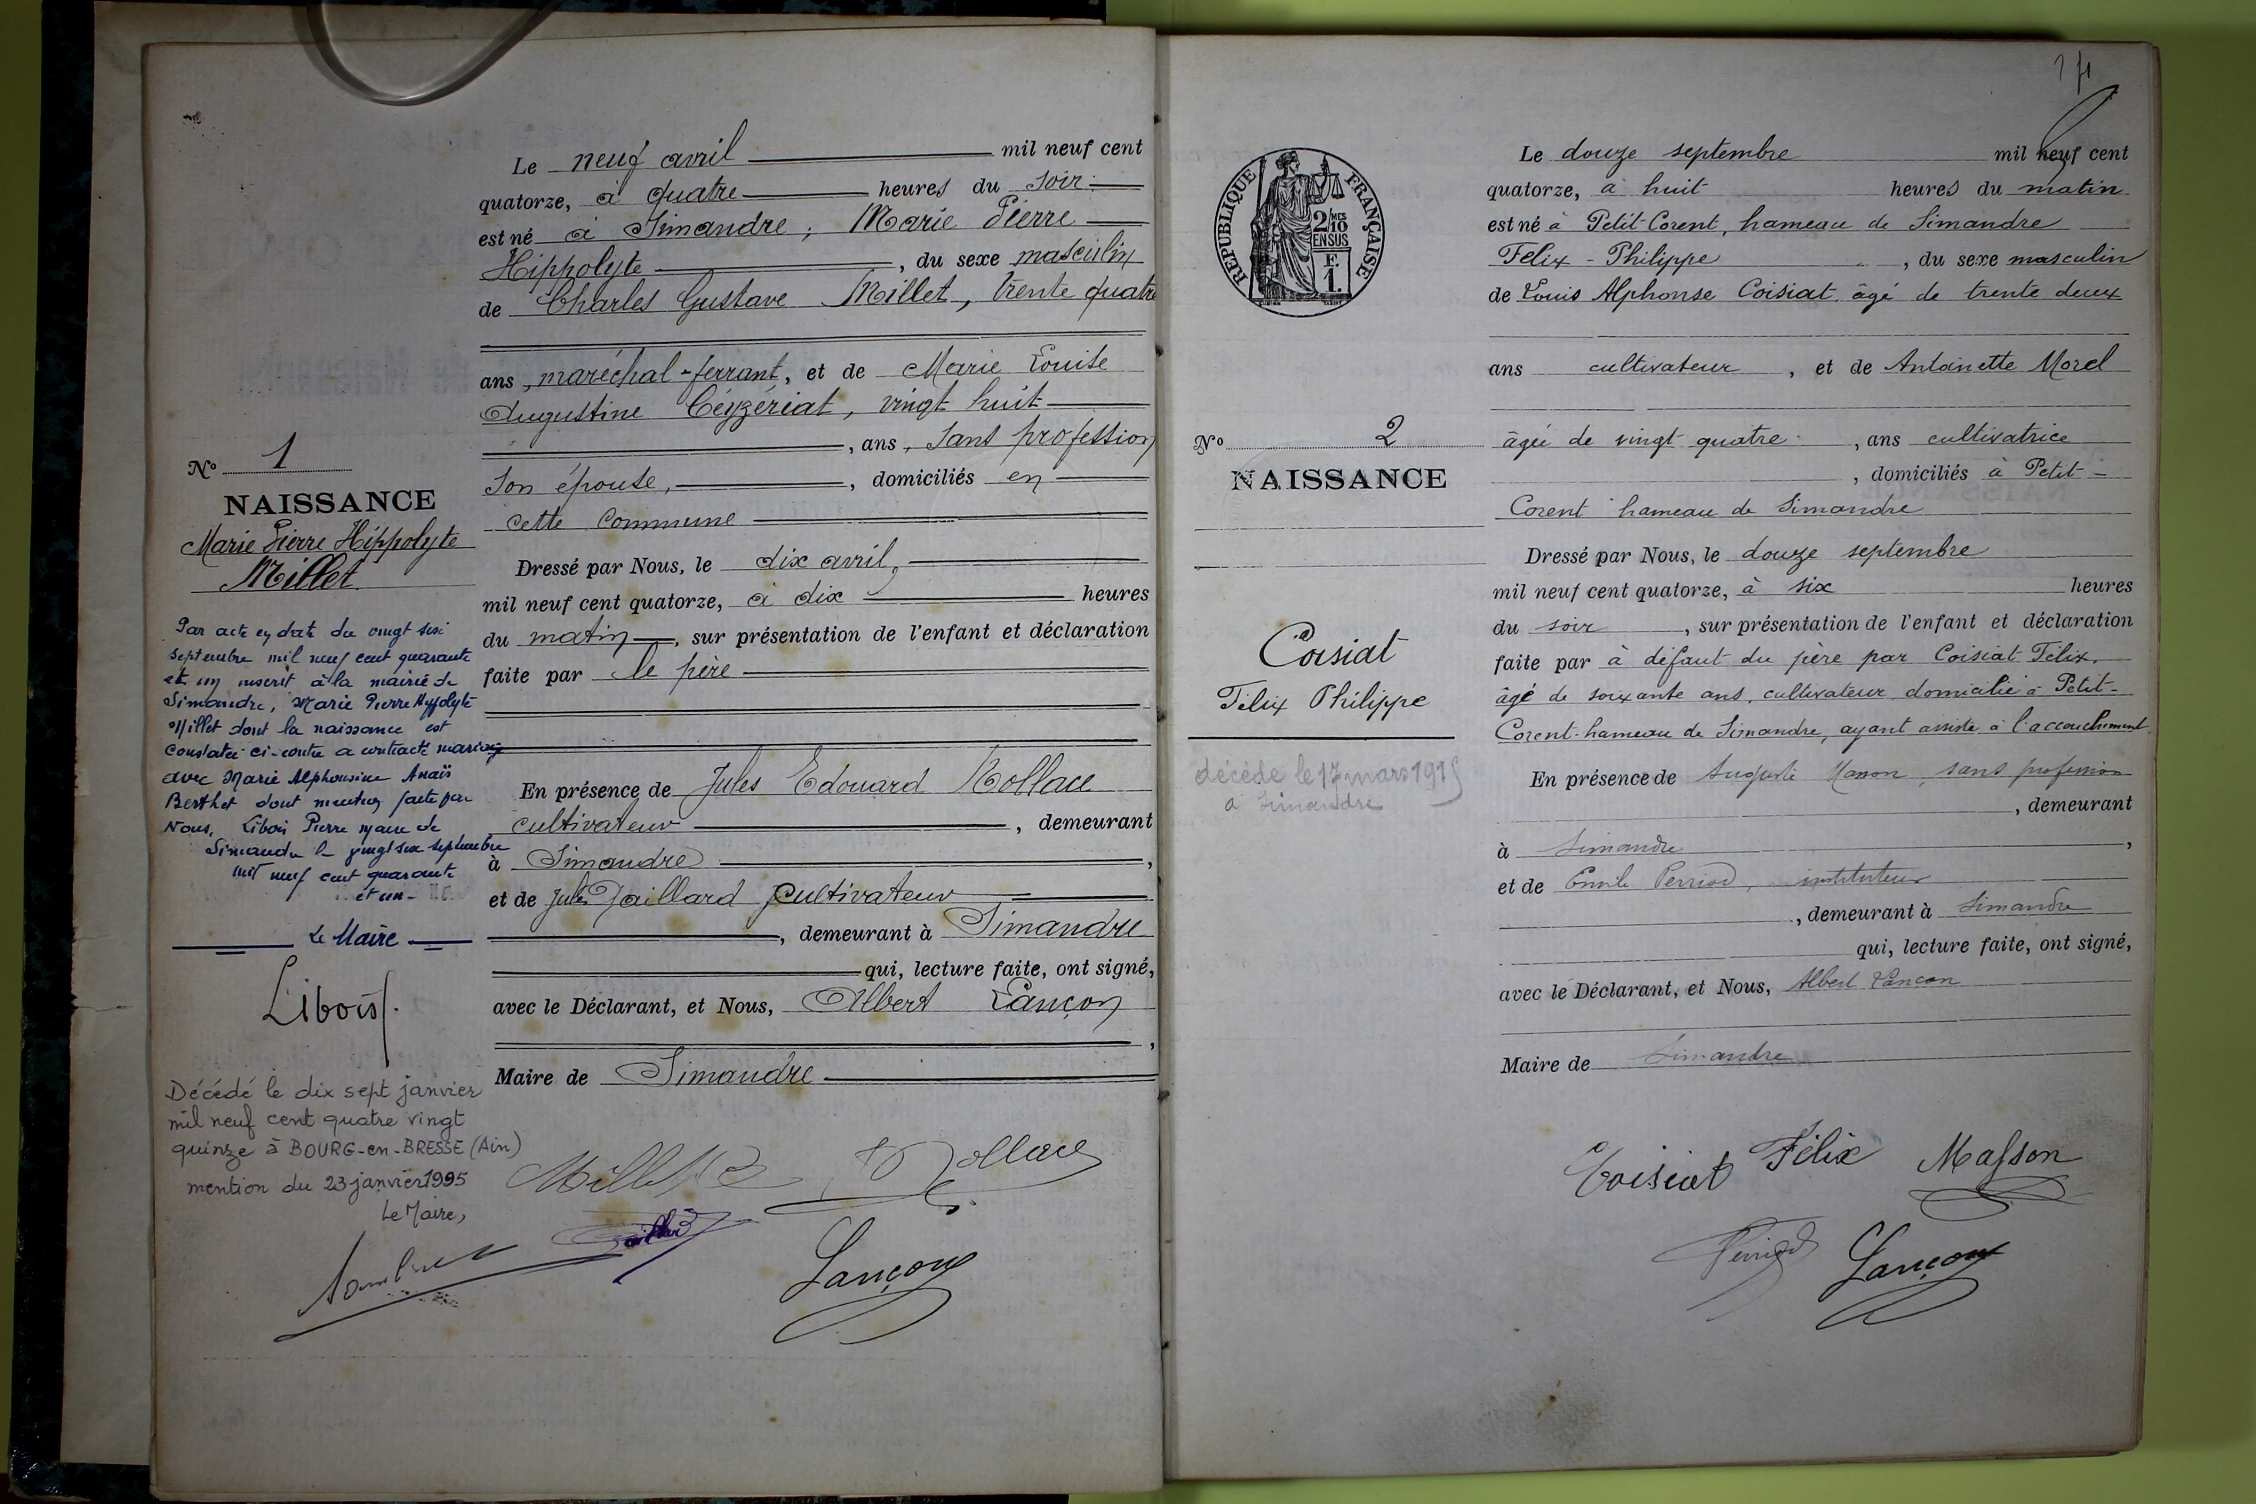 Le neuf avril mil neuf cent
quatorze, à quatre heures du soir
est né à Simandre, Marie Pierre
Hippolyte, du sexe masculin
de Charles Gustave Millet, trente quatre
ans, maréchal-ferrant, et de Marie Louise
Augustine Ceyzériat, vingt huit
, ans, sans profession
son épouse, , domiciliés en
cette commune
Dressé par Nous, le dix avril,
mil neuf cent quatorze, à dix heures
du matin, sur présentation de l'enfant et déclaration
faite par le père
En présence de Jules Edouard Rollace
cultivateur, demeurant
à Simandre,
et de Jules Jaillard cultivateur
, demeurant à Simandre
qui, lecture faite, ont signé,
avec le Déclarant, et Nous, Albert Lançon
,
Maire de Simandre
Nº 1
NAISSANCE
Marie Pierre Hippolyte
Millet
Par acte en date du vingt six
septembre mil neuf cent quarante
et un inscrit à la mairie de
Simandre, Marie Pierre Hyppolyte
Millet dont la naissance est
constatée ci-contre a contracté mariage
avec Marie Alphonsine Anaïs
Berthet dont mention faite par
Nous, Libois Pierre maire de
Simandre le vingt six septembre
mil neuf cent quarante
et un
Le Maire
Libois
Décédé le dix sept janvier
mil neuf cent quatre vingt
quinze à BOURG-en-BRESSE (Ain)
mention du 23 janvier 1995
Le Maire,
Millet
Rollace
Jaillard
Lançon
Le douze septembre mil neuf cent
quatorze, à huit heures du matin
est né à Petit-Corent, hameau de Simandre
Felix-Philippe, du sexe masculin
de Louis Alphonse Coisiat âgé de trente deux
ans cultivateur, et de Antoinette Morel
âgée de vingt quatre, ans cultivatrice
, domiciliés à Petit-
Corent hameau de Simandre
Dressé par Nous, le douze septembre
mil neuf cent quatorze, à six heures
du soir, sur présentation de l'enfant et déclaration
faite par à défaut du père par Coisiat Félix,
âgé de soixante ans, cultivateur domicilié à Petit-
Corent-hameau de Simandre, ayant assisté à l'accouchement
En présence de Auguste Masson, sans profession
, demeurant
à Simandre,
et de Emile Perriod, instituteur
, demeurant à Simandre
qui, lecture faite, ont signé,
avec le Déclarant, et Nous, Albert Lançon
Maire de Simandre
RÉPUBLIQUE FRANÇAISE
2/10 MES
EN SUS
F.
1.
Nº 2
NAISSANCE
Coisiat
Félix Philippe
décédé le 17 mars 1915
à Simandre
Coisiat Félix
Masson
Perriod
Lançon